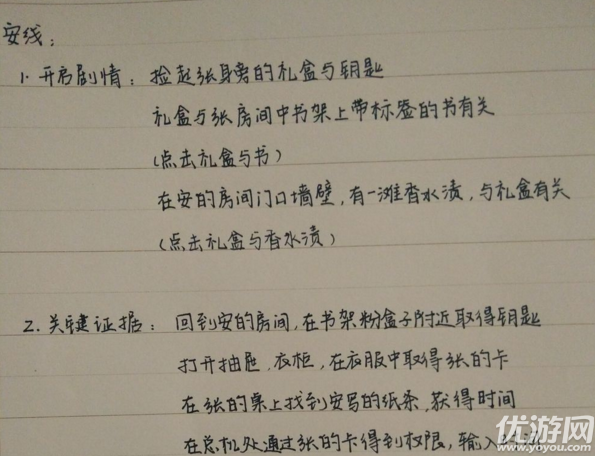 安线：
1. 开启剧情：捡起张身旁的礼盒与钥匙
礼盒与张房间中书架上带标签的书有关
(点击礼盒与书)
在安的房间门口墙壁，有一滩香水渍，与礼盒有关
(点击礼盒与香水渍)
2. 关键证据：回到安的房间，在书架粉盒子附近取得钥匙
打开抽屉，衣柜，在衣服中取得张的卡
在张的桌上找到安写的纸条，获得时间
在总机处通过张的卡得到权限，输入
优游网
yoyou.com